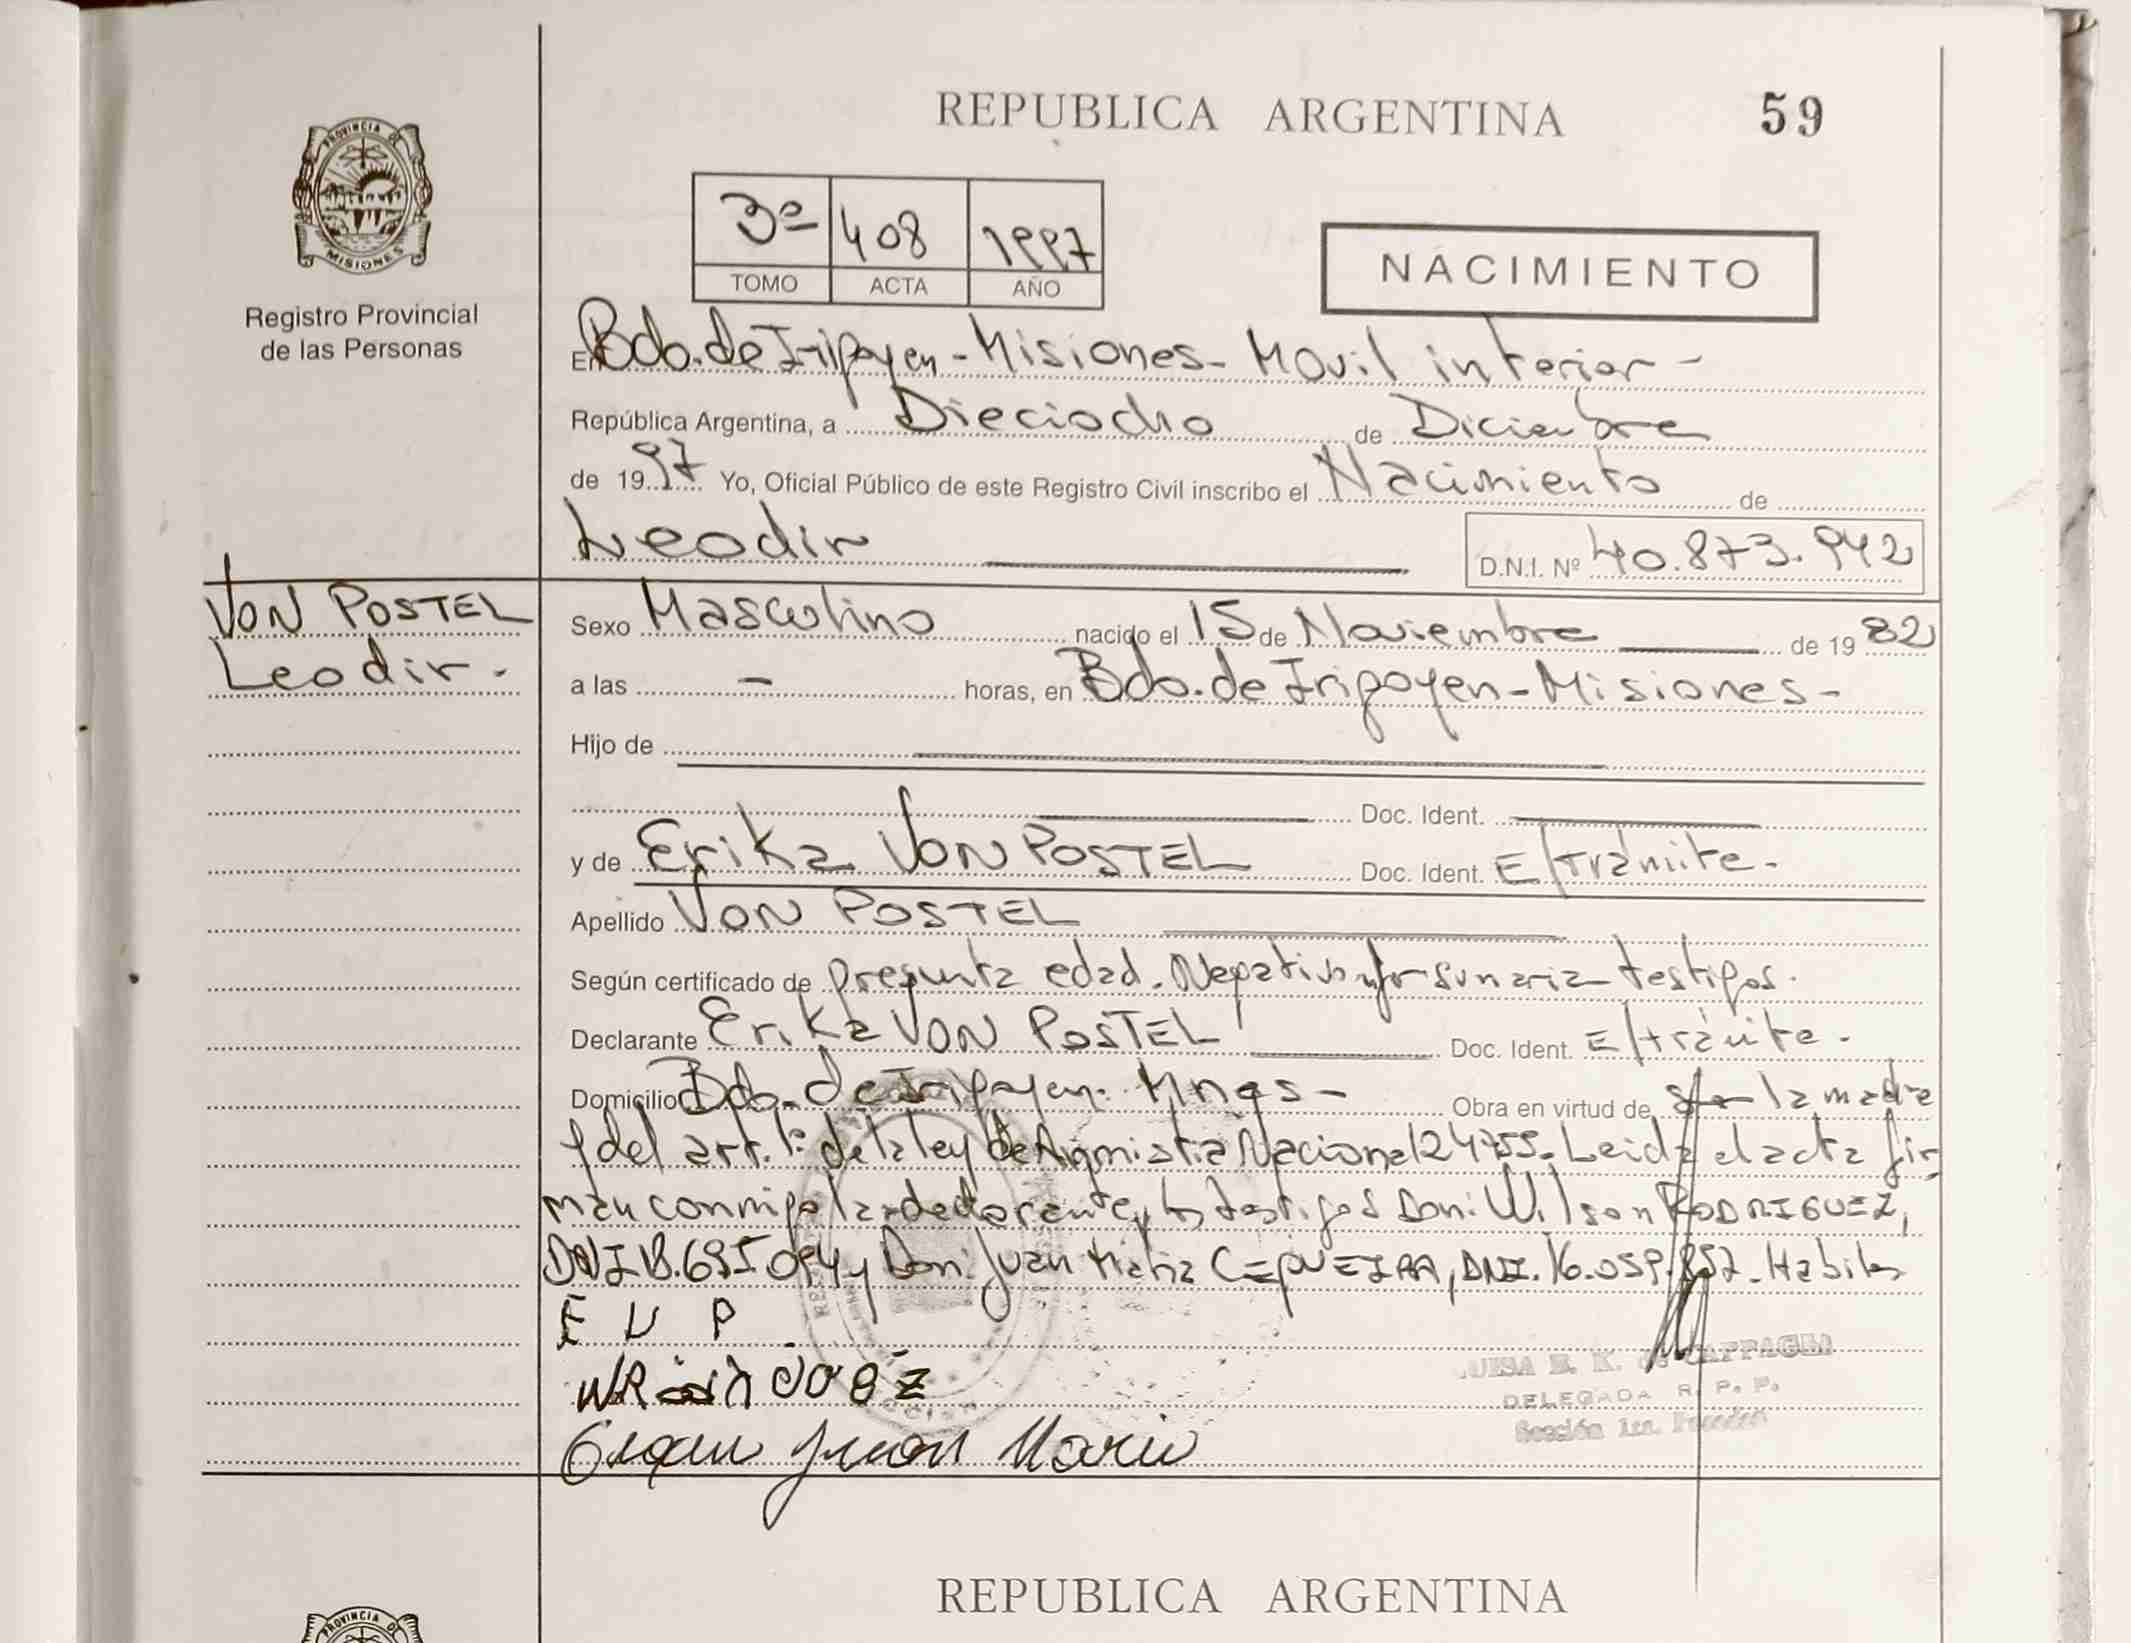 REPUBLICA ARGENTINA
59
PROVINCIA DE MISIONES
Registro Provincial
de las Personas
3º 408 1997
TOMO ACTA AÑO
NACIMIENTO
En Bdo. de Irigoyen - Misiones - Movil interior -
República Argentina, a Dieciocho de Diciembre
de 1997 Yo, Oficial Público de este Registro Civil inscribo el Nacimiento de
Leodir
D.N.I. Nº 40.873.942
VON POSTEL
Leodir.
Sexo Masculino nacido el 15 de Noviembre de 1982
a las - horas, en Bdo. de Irigoyen - Misiones -
Hijo de
Doc. Ident.
y de Erika VON POSTEL Doc. Ident. E/trámite.
Apellido VON POSTEL
Según certificado de Presunta edad. Negativo testigos.
Declarante Erika VON POSTEL Doc. Ident. E/trámite.
Domicilio Bdo. de Irigoyen. Mnes - Obra en virtud de la madre
y del art. 1º de la ley de Amnistia Nacional 24755. Leida el acta fir
man conmigo la declarante y los testigos Don: Wilson RODRIGUEZ,
DNI 18.695 094 y Don: Juan Maria CEQUEIRA, DNI. 16.059.857. Habiles
E V P
Juan Mario
DELEGADA R. P. P.
Sección 1ra. Posadas
REPUBLICA ARGENTINA
PROVINCIA DE